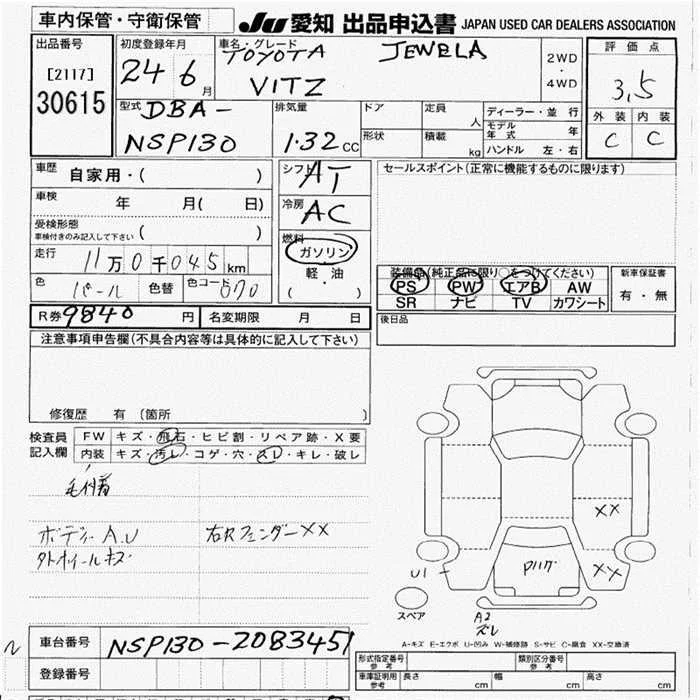 車内保管・守衛保管
JU 愛知 出品申込書 JAPAN USED CAR DEALERS ASSOCIATION
出品番号
[2117]
30615
初度登録年月
24 6 月
車名・グレード
TOYOTA JEWELA
VITZ
2WD
・
4WD
評価点
3,5
外装 内装
C C
型式 DBA-
NSP130
排気量
1.32 CC
ドア 定員 人
形状 積載 kg
ディーラー・並行
モデル年式 年
ハンドル 左・右
車歴 自家用・( )
車検 年 月( 日)
受検形態
車検付きのみ記入して下さい ( )
走行 11万0千045km
色 パール 色替 色コード 070
シフト AT
冷房 AC
燃料
ガソリン
軽・油
( ・ )
セールスポイント(正常に機能するものに限ります)
装備品(純正品に限り○をつけてください)
PS PW エアB AW
SR ナビ TV カワシート
新車保証書
有・無
後日品
R券 9840 円 名変期限 月 日
注意事項申告欄(不具合内容等は具体的に記入して下さい)
修復歴 有(箇所
検査員
記入欄
FW キズ・飛石・ヒビ割・リペア跡・X要
内装 キズ・汚レ・コゲ・穴・スレ・キレ・破レ
ボディー A.U 右Rフェンダー XX
タトホイールキズ
XX
U1
XX
スペア
A2
ズレ
A-キズ E-エクボ U-凹み W-補修跡 S-サビ C-腐食 XX-交換済
車台番号 NSP130-2083451
登録番号
形式指定番号
参考
類別区分番号
参考
車庫証明用
参考
長さ cm 幅 cm 高さ cm